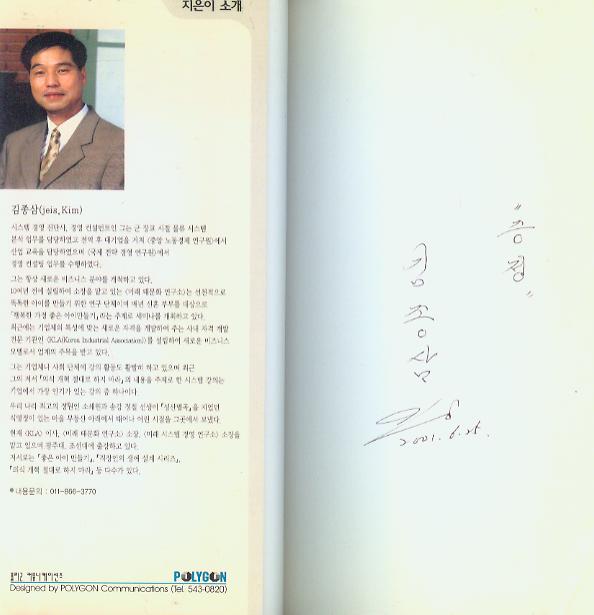 지은이 소개
김종삼(jeis, Kim)
시스템 경영 진단사, 경영 컨설턴트인 그는 군 장교 시절 물류 시스템
분석 업무를 담당하였고 전역 후 대기업을 거쳐 〈중앙 노동경제 연구원〉에서
산업 교육을 담당하였으며 〈국제 전략 경영 연구원〉에서
경영 컨설팅 업무를 수행하였다.
그는 항상 새로운 비즈니스 분야를 개척하고 있다.
10여년 전에 설립하여 소장을 맡고 있는 〈미래 태문화 연구소〉는 선천적으로
똑똑한 아이를 만들기 위한 연구 단체이며 매년 신혼 부부를 대상으로
「행복한 가정 좋은 아이만들기」라는 주제로 세미나를 개최하고 있다.
최근에는 기업체의 특성에 맞는 새로운 자격을 개발하여 주는 사내 자격 개발
전문 기관인 〈KLA(Korea Industrial Association)〉를 설립하여 새로운 비즈니스
모델로서 업계의 주목을 받고 있다.
그는 기업체나 사회 단체에 강의 활동도 활발히 하고 있으며 최근
그의 저서 「의식 개혁 절대로 하지 마라」의 내용을 주제로 한 시스템 강의는
기업에서 가장 인기가 있는 강의 중 하나이다.
우리 나라 최고의 정원인 소쇄원과 송강 정철 선생이 「성산별곡」을 지었던
식영정이 있는 마을 무등산 아래에서 태어나 어린 시절을 그곳에서 보냈다.
현재 〈KLA〉 이사, 〈미래 태문화 연구소〉 소장, 〈미래 시스템 경영 연구소〉 소장을
맡고 있으며 광주대, 조선대에 출강하고 있다.
저서로는 「좋은 아이 만들기」, 「직장인의 생애 설계 시리즈」,
「의식 개혁 절대로 하지 마라」 등 다수가 있다.
● 내용문의 : 011-866-3770
폴리곤 커뮤니케이션즈
POLYGON
Designed by POLYGON Communications (Tel. 543-0820)
"증정"
김종삼
2001. 6. 26.